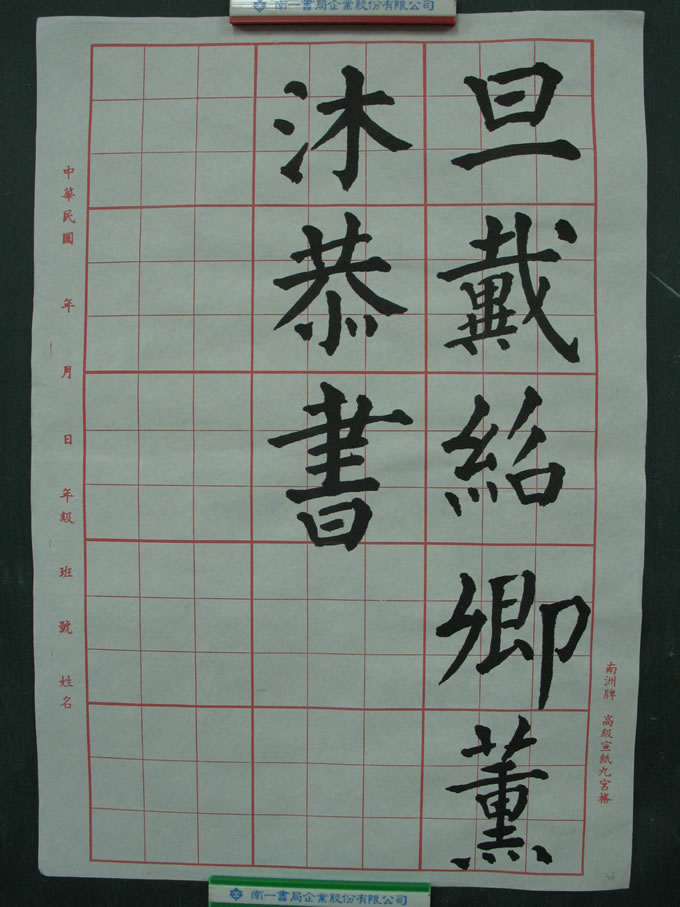 南一書局企業股份有限公司
旦戴紹卿薰
沐恭書
中華民國 年 月 日 年級 班 號 姓名
南洲牌 高級宣紙九宮格
南一書局企業股份有限公司